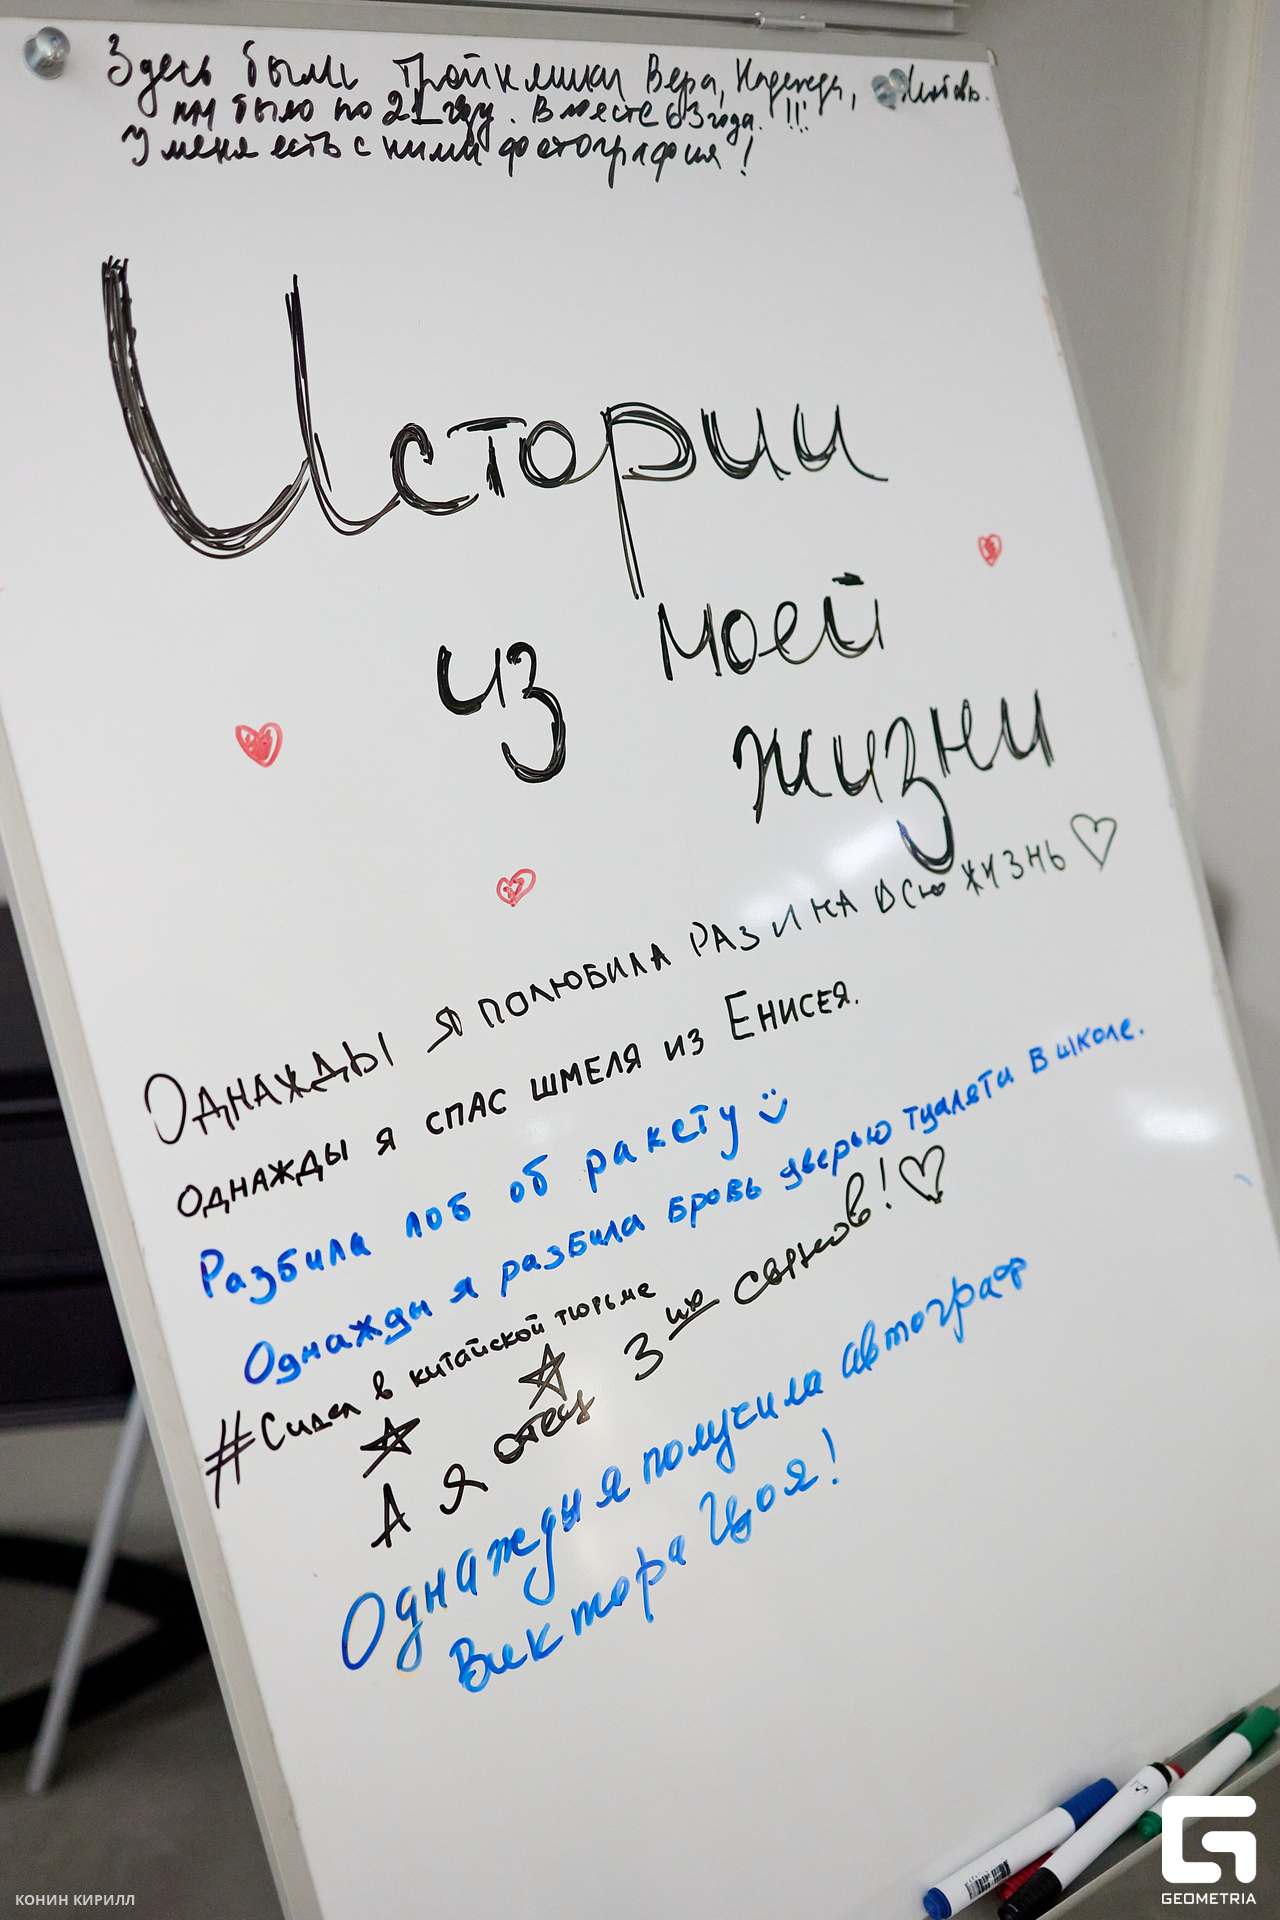 Здесь были тройняшки Вера, Надежда, Любовь.
им было по 21 году. Вместе 63 года. !!!
У меня есть с ними фотография!
Истории
из моей
жизни
Однажды я полюбила раз и на всю жизнь
Однажды я спас шмеля из Енисея.
Разбила лоб об ракету
Однажды я разбила бровь дверью туалята в школе.
#Сидел в китайской тюрьме
А я отец 3их сынков!
Однажды я получила автограф
Виктора Цоя!
КОНИН КИРИЛЛ
GEOMETRIA